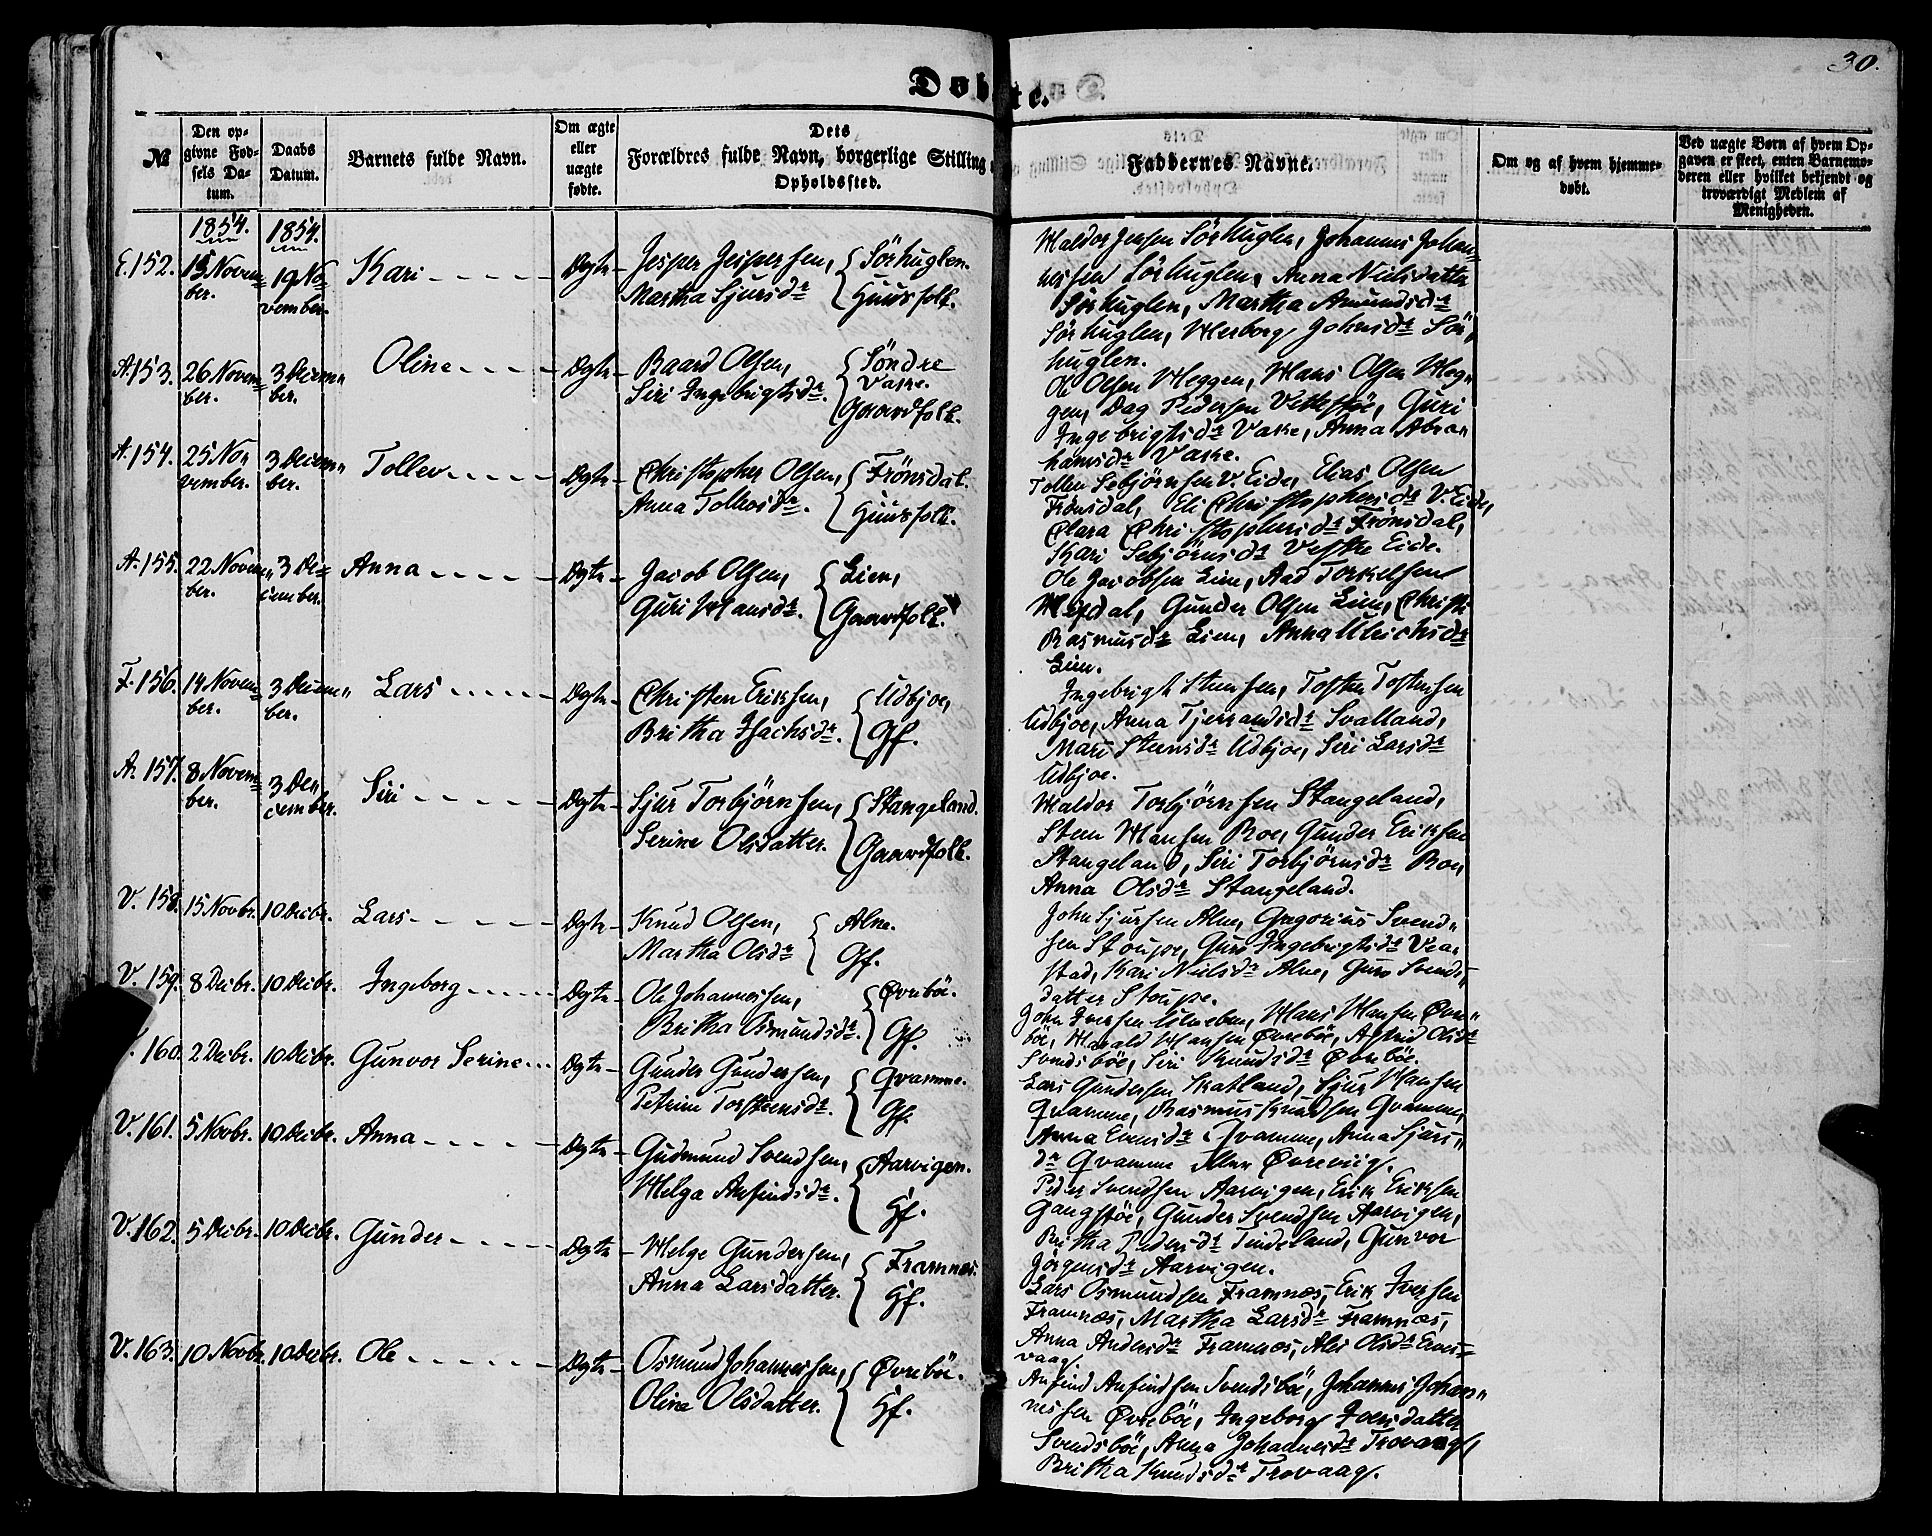 30.
Døbte.
№
Den op-
givne Fød-
sels Da-
tum.
Daabs
Datum.
Barnets fulde Navn.
Om ægte
eller
uægte
fødte.
Dets
Forældres fulde Navn, borgerlige Stilling
Opholdssted.
Faddernes Navne.
Om og af hvem hjemme-
døbt.
Ved uægte Børn af hvem Op-
gaven er skeet, enten Barnemo-
deren eller hvilket bekjendt og
troværdigt Medlem af
Menigheden.
1854. 1854.
E. 152. Novem- 19 No- Kari Ægte Jesper Jespersen, Sörhuglen.
ber. vember. Martha Sjursdr Huusfolk.
Haldor Jensen Sörhuglen, Johannes Johan-
nessen Sörhuglen, Anna Nielsdatter
Sörhuglen, Martha Amundsdr
Sörhuglen, Herborg Johnsdr Sör-
huglen.
A. 153. 26 Novem- 3 Decem- Oline Ægte Baard Olsen, Söndre
ber. ber. Siri Ingebrigtsdr. Vaske.
Gaardfolk.
Ole Olsen Heggen, Hans Olsen Heg-
gen, Dag Pedersen Guri
Ingebrigtsdr Vaske, Anna Abra-
hamsdr Vaske.
A. 154. 25 No- 3 Decem- Tollev Ægte Christopher Olsen, Frönsdal.
vember. ber. Anna Tollevsdr. Huusfolk.
Tollev Sebjörnsen V. Eide, Elias Olsen
Frönsdal, Eli Christophersdr V. Eide,
Clara Christophersdr Frönsdal,
Kari Sebjörnsdr Vestre Eide.
A. 155. 22 Novem- 3 De- Anna Ægte Jacob Olsen, Lien,
ber. cember. Guri Hansdr. Gaardfolk.
Ole Jacobsen Lien, Aad Torkelsen
Gunder Olsen Lien, Christi
Rasmusdr Lien, Anna Ulrichsdr
Lien.
F. 156. 14 Novem- 3 Decem- Lars Ægte Christen Eriksen, Udbjoe,
ber. ber. Britha Isachsdr. Gf.
Ingebrigt Steensen, Tosten Tostensen
Udbjoe, Anna Tjerrandsdr Svalland,
Mari Steensdr Udbjoe, Siri Larsdr
Udbjoe.
A. 157. 8 Novem- 3 De- Siri Ægte Sjur Torbjörnsen, Stangeland.
ber. cember. Serine Olsdatter. Gaardfolk.
Haldor Torbjörnsen Stangeland,
Steen Hansen Roe, Gunder Eriksen
Stangeland, Siri Torbjörnsdr Roe,
Anna Olsdr Stangeland.
V. 158. 15 Novbr. 10 Decbr. Lars Ægte Knud Olsen, Alne.
Martha Olsdr Gf.
John Sjursen Alne, Gregorius Svend-
sen Stoupe, Guro Ingebrigtsdr Vraa-
stad, Kari Nielsdr Alne, Guro Svends-
datter Stoupe.
V. 159. 8 Decbr. 10 Decbr. Ingeborg Ægte Ole Johannessen, Övrebö.
Britha Osmundsdr. Gf.
John Iversen Hans Hansen Övre-
bö, Harald Hansen Övrebö, Astrid Olsdr
Svendsböe, Siri Knudsdr Övreböe.
160. 2 Decbr. 10 Decbr. Gunvor Serine Ægte Gunder Gundersen, Qvamme.
Petrine Torsteensdr. Gf.
Lars Gundersen Skatland, Sjur Hansen
Qvamme, Rasmus Knudsen Qvamme,
Anna Qvamme, Anna Sjurs-
dr Qvamme
V. 161. 5 Novbr. 10 Decbr. Anna Ægte Gudmund Svendsen, Aarvigen.
Helga Anfindsdr. Gf.
Peder Svendsen Aarvigen, Erik Eriksen
Gangstöe, Gunder Svendsen Aarvigen,
Britha Pedersdr Tindeland, Gunvor
Jörgensdr Aarvigen.
V. 162. 5 Decbr. 10 Decbr. Gunder Ægte Helge Gundersen, Framnæs.
Anna Larsdatter. Gf.
Lars Osmundsen Framnæs, Erik Iversen
Framnæs, Martha Larsdr Framnæs,
Anna Andersdr Framnæs, Alis Olsdr
vaag.
V. 163. 10 Novbr. 10 Decbr. Ole Ægte Osmund Johannessen, Övrebö.
Oline Olsdatter. Gf.
Anfind Anfindsen Svendsböe, Johannes Johan-
nessen Övreböe, Ingeborg Iversdatter
Svendsböe, Anna Johannesdr Trovaag,
Britha Knudsdr Trovaag.